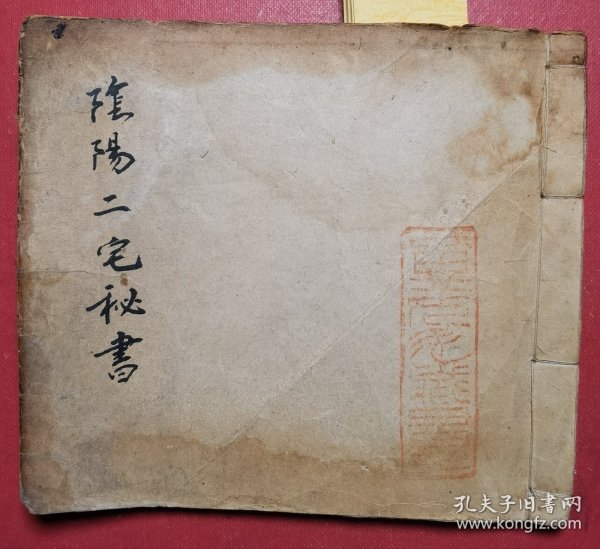 陰陽二宅秘書
孔夫子旧书网
www.kongfz.com